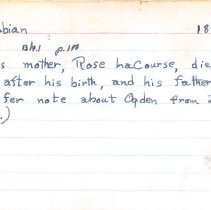 bian 18
Bks p.100
s mother, Rose LaCourse, die
after his birth, and his father
fer note about Ogden from
.)